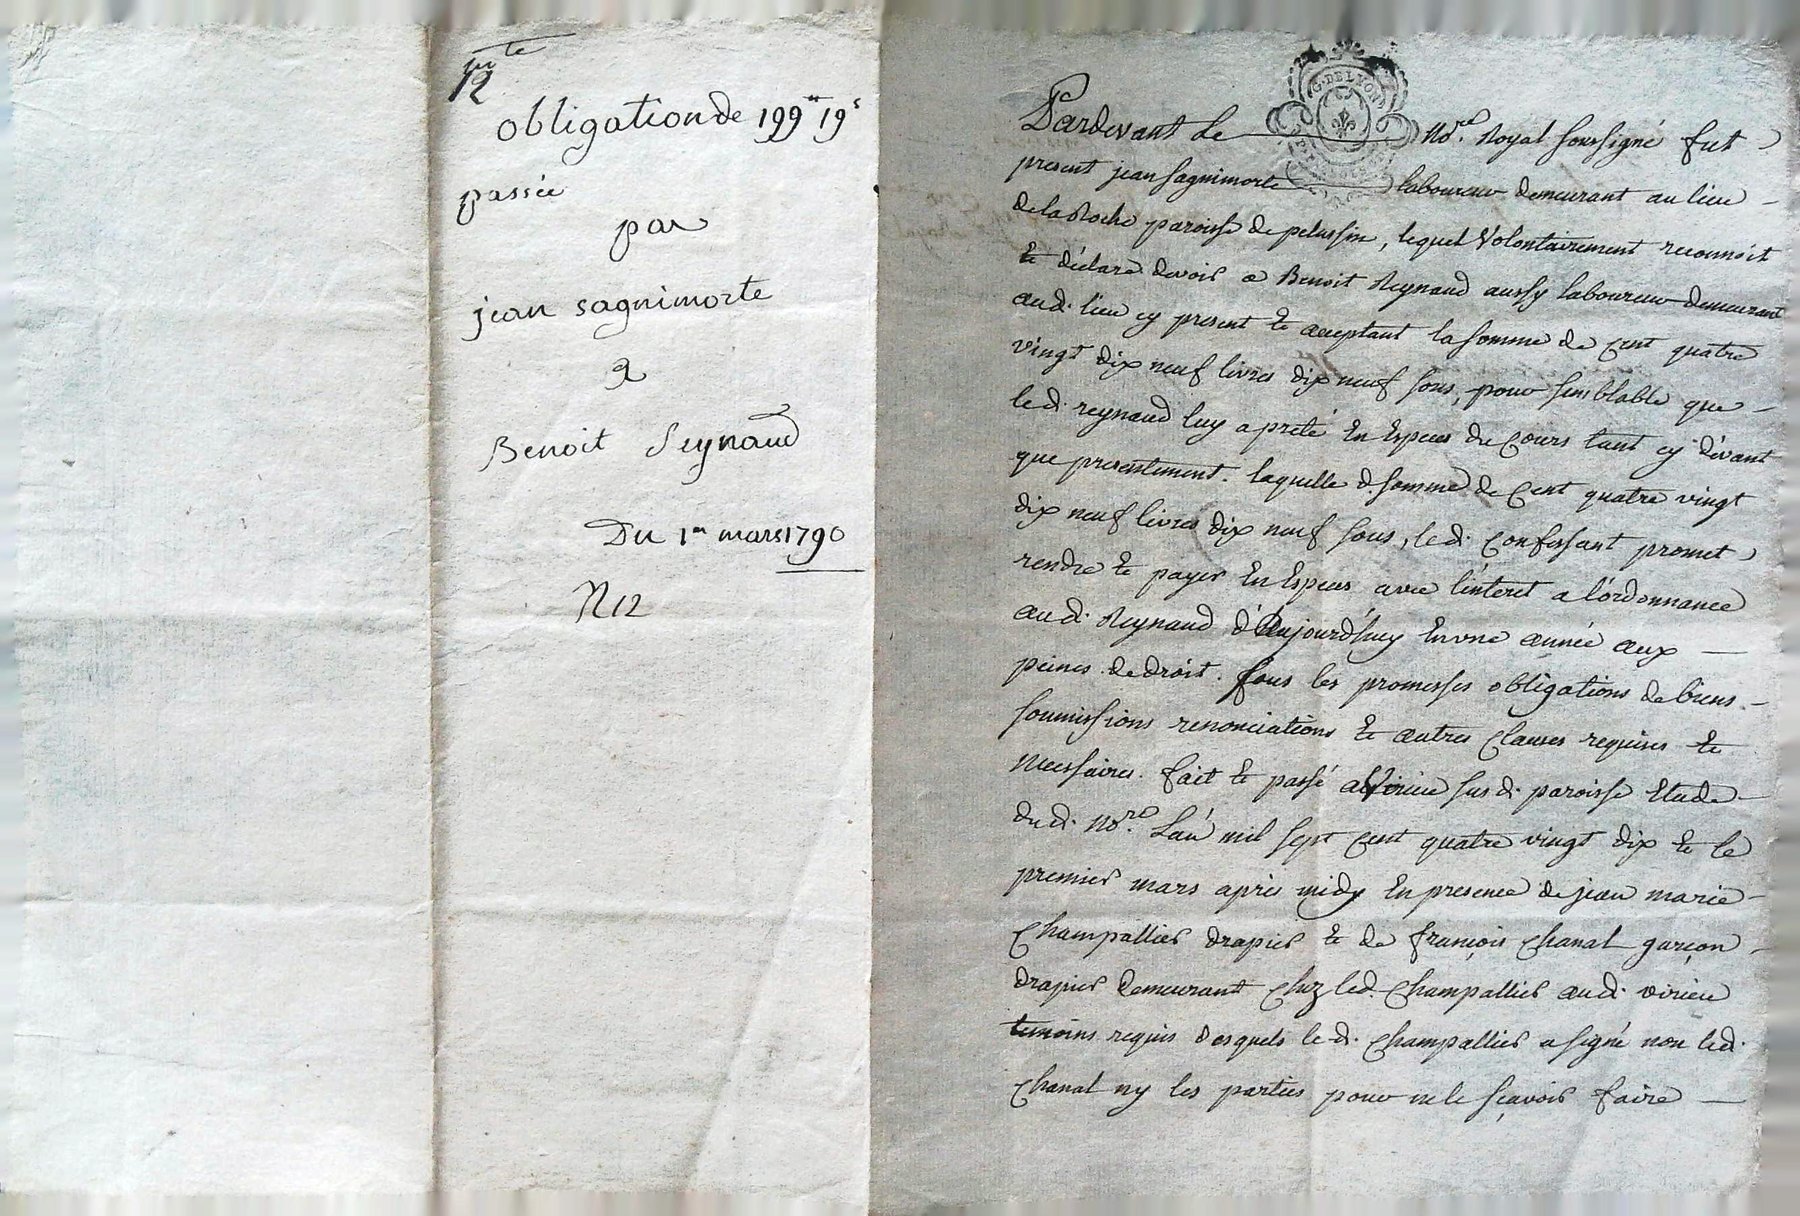 obligation de 199tt 19s
passée
par
jean sagnimorte
a
Benoit Reynaud
Du 1er mars 1790
N 12
G. DE LYON
Pardevant Le No.re Royal soussigné fut
present jean sagnimorte laboureur demeurant au lieu
de la Roche paroisse de pelussin, lequel Volontairement reconnoit
et déclare devoir a Benoit Reynaud aussy laboureur demeurant
au d. lieu cy present et acceptant la somme de Cent quatre
vingt dix neuf livres dix neuf sous, pour semblable que
le d. reynaud luy a preté En Especes du Cours tant cy dévant
que presentement. laquelle d. somme de Cent quatre vingt
dix neuf livres dix neuf sous, le d. Confessant promet
rendre et payer En Especes avec l'interet a l'ordonnance
au d. Reynaud d'Aujourd'huy En une année aux
peines de droit. sous les promesses obligations de biens
soumissions renonciations et autres Clauses requises et
necessaires. fait et passé a Virieu sus d. paroisse Etude
du d. No.re L'an mil sept Cent quatre vingt dix et le
premier mars après midy En presence de jean marie
Champallier drapier et de françois Chanal garçon
drapier demeurant Chez led. Champallier au d. virieu
temoins requis desquels le d. Champallier a signé non led.
Chanal ny les parties pour ne le sçavoir faire